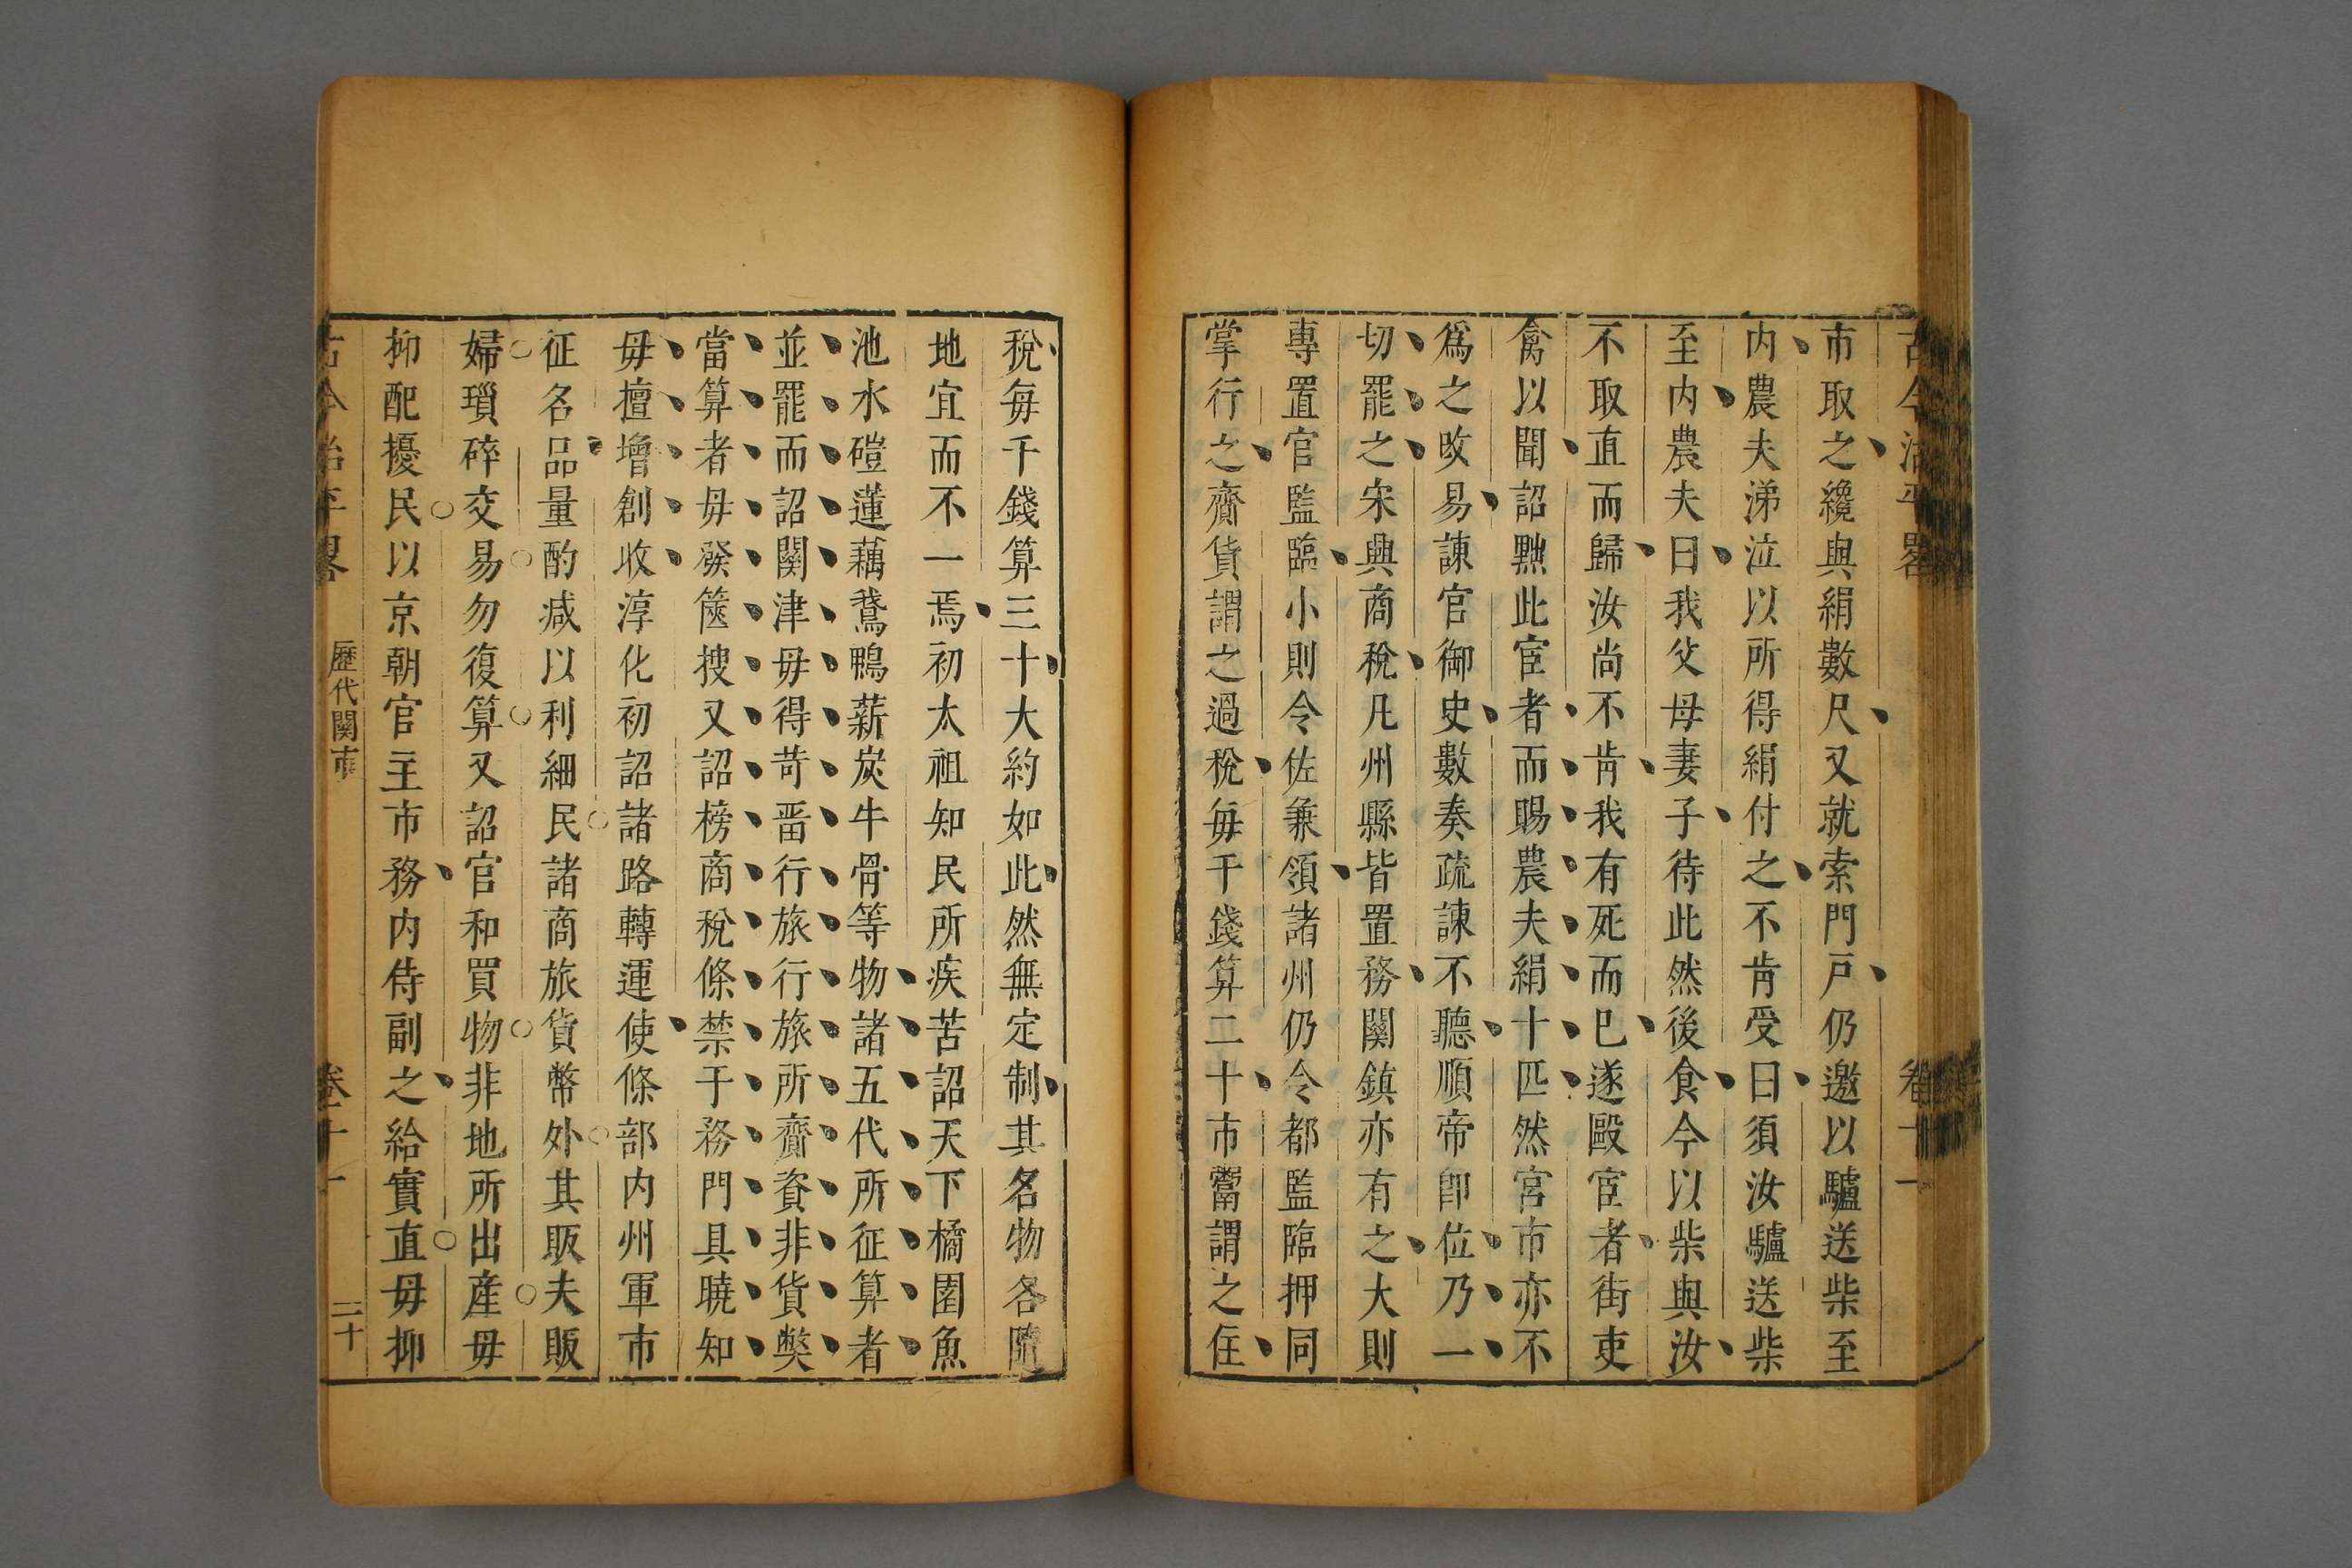 古今治平畧 卷十一
市取之纔與絹數尺又就索門戸仍邀以驢送柴至
内農夫涕泣以所得絹付之不肯受曰須汝驢送柴
至内農夫曰我父母妻子待此然後食今以柴與汝
不取直而歸汝尚不肯我有死而已遂毆宦者街吏
禽以聞詔黜此宦者而賜農夫絹十匹然宮市亦不
爲之改易諫官御史數奏疏諫不聽順帝卽位乃一
切罷之宋興商稅凡州縣皆置務關鎮亦有之大則
專置官監臨小則令佐兼領諸州仍令都監臨押同
掌行之齎貨謂之過稅每千錢算二十市鬻謂之住
稅每千錢算三十大約如此然無定制其名物各隨
地宜而不一焉初太祖知民所疾苦詔天下橘園魚
池水磑蓮藕鵞鴨薪炭牛骨等物諸五代所征算者
並罷而詔關津毋得苛畱行旅行旅所齎資非貨幣
當算者毋發篋搜又詔榜商稅條禁于務門具曉知
毋擅增創收淳化初詔諸路轉運使條部内州軍市
征名品量酌减以利細民諸商旅貨幣外其販夫販
婦瑣碎交易勿復算又詔官和買物非地所出産毋
抑配擾民以京朝官主市務内侍副之給實直毋抑
古今治平畧 歷代關市 卷十一 二十